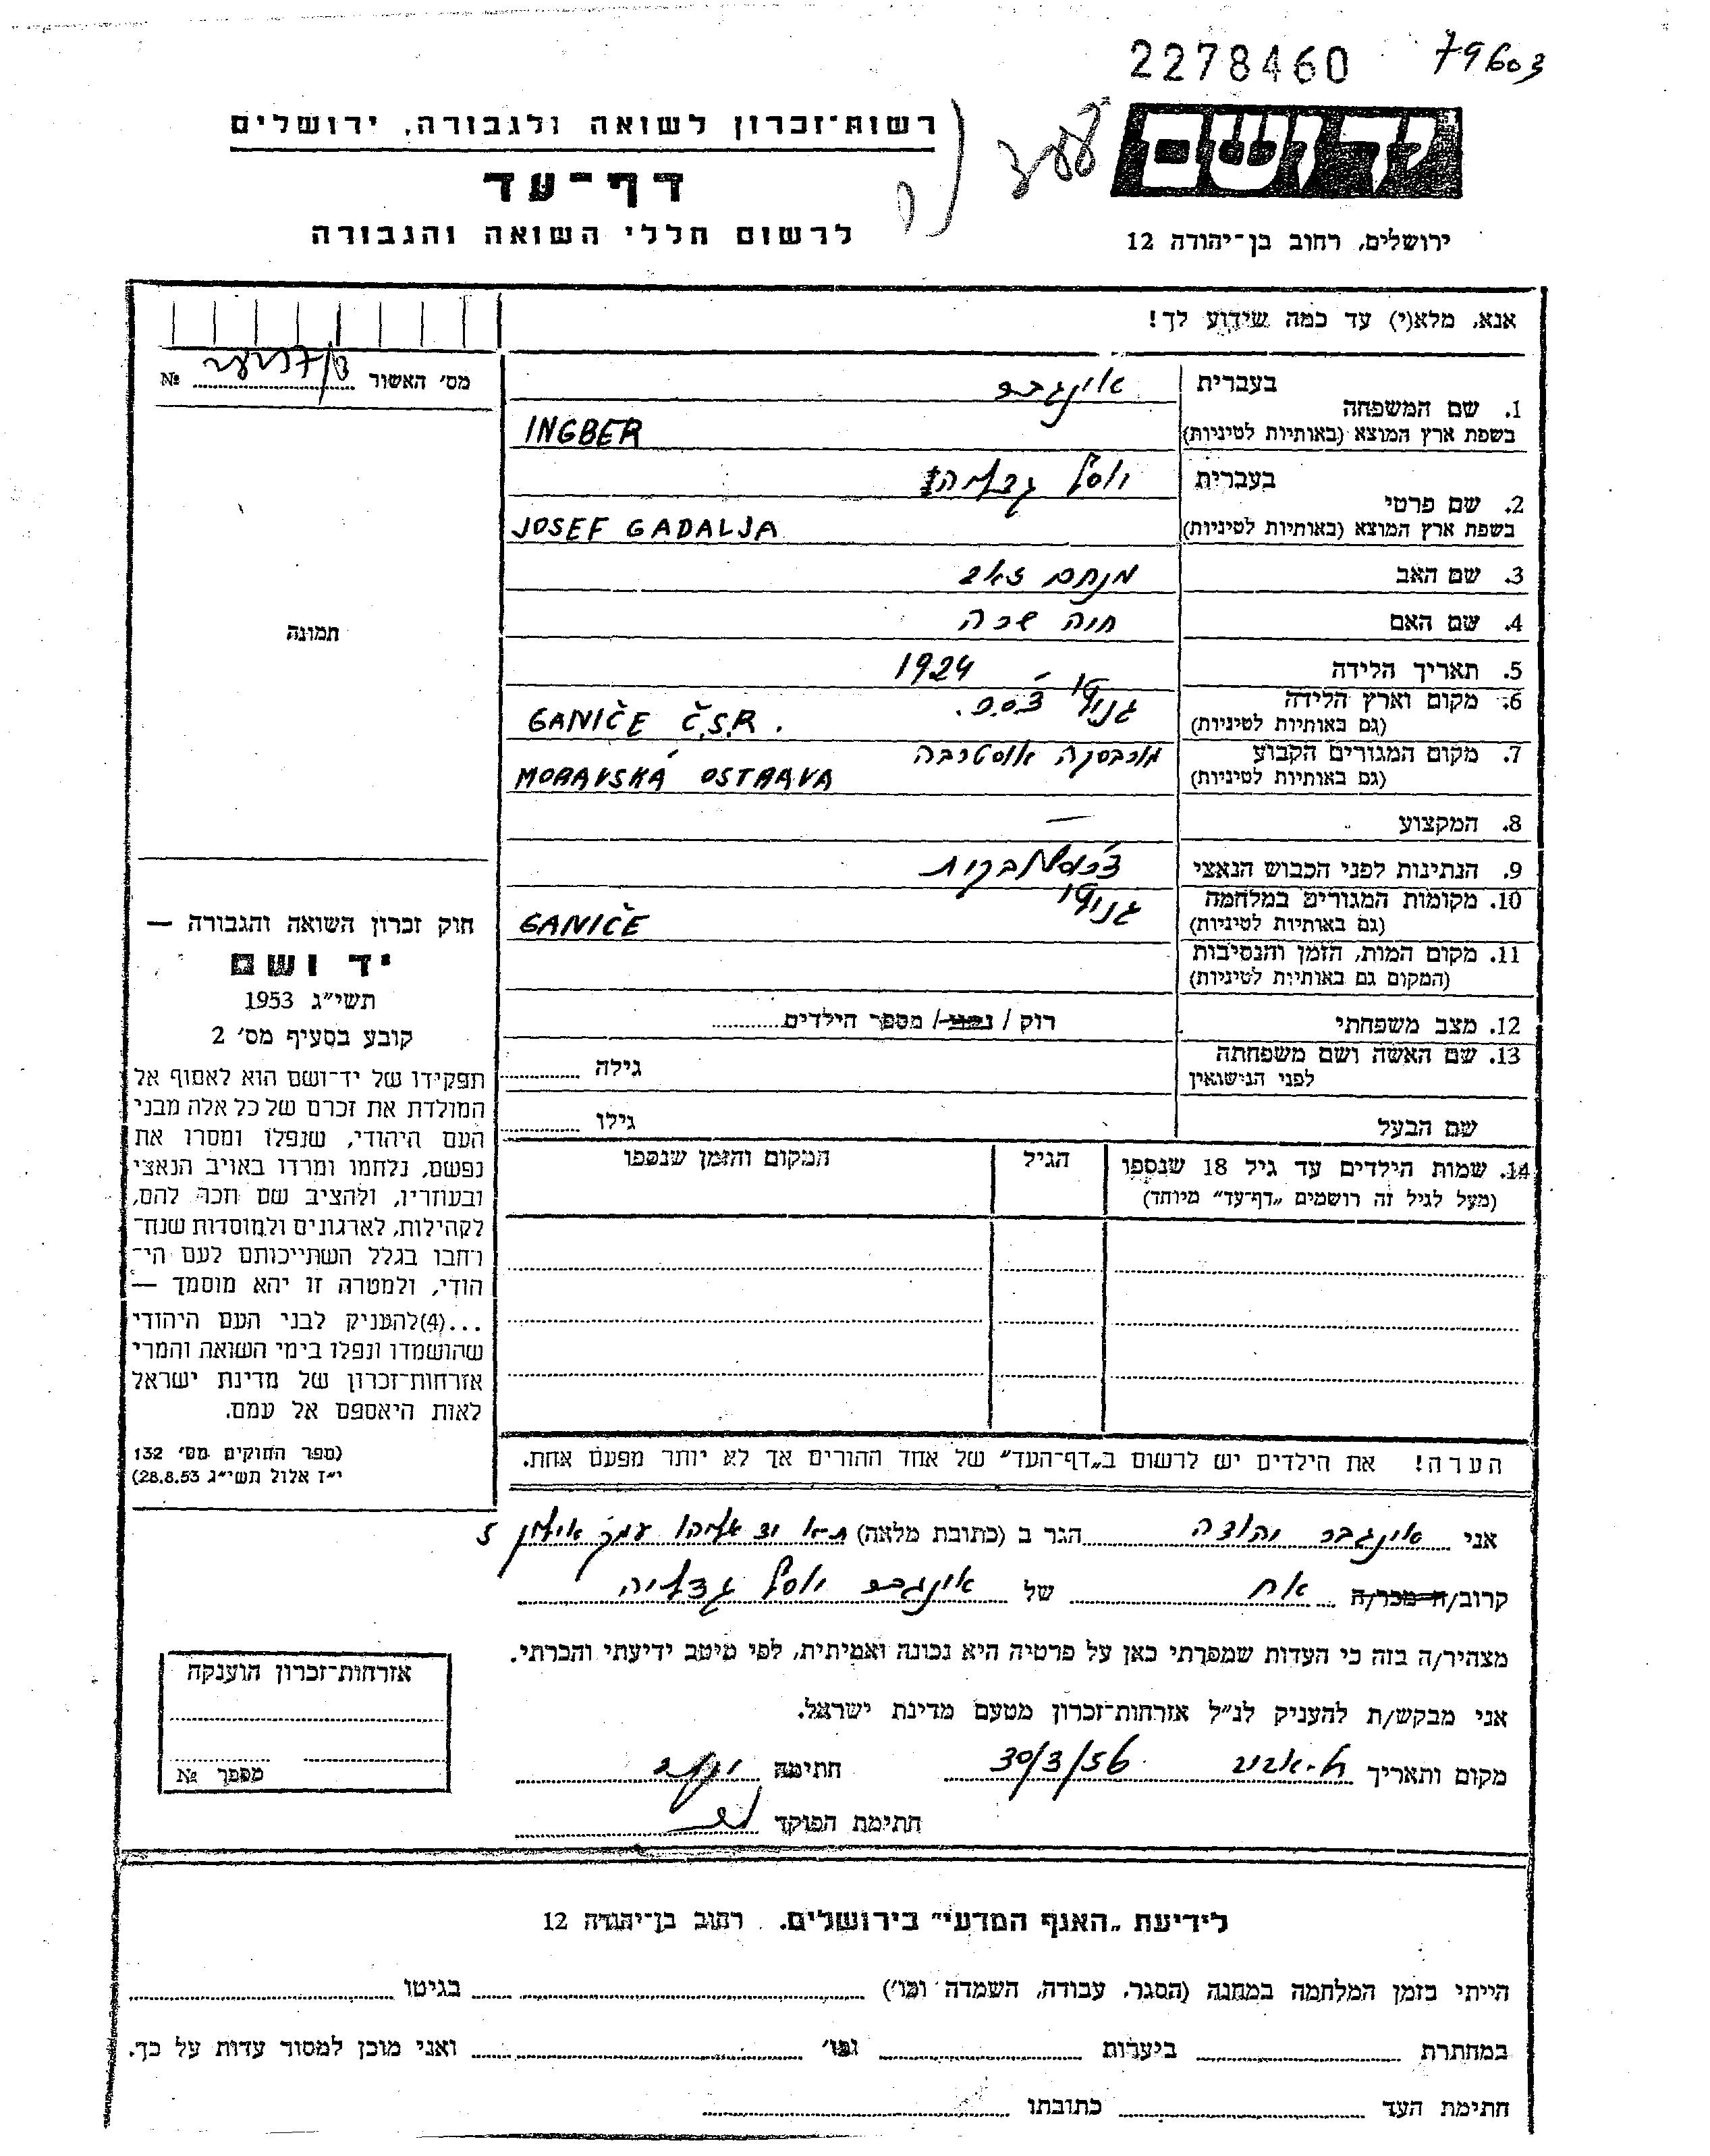 2278460 79603
יד ושם
רשות־זכרון לשואה ולגבורה, ירושלים
דף־עד
לרשום חללי השואה והגבורה
ירושלים, רחוב בן־יהודה 12
אנא, מלא(י) עד כמה שידוע לך!
מס' האשור № 
1. שם המשפחה
בעברית אינגבר
בשפת ארץ המוצא (באותיות לטיניות) INGBER
2. שם פרטי
בעברית יוסף גדליהו
בשפת ארץ המוצא (באותיות לטיניות) JOSEF GADALJA
3. שם האב מנחם זאב
4. שם האם חיה שרה
5. תאריך הלידה 1924
6. מקום וארץ הלידה
(גם באותיות לטיניות) GANIČE Č.S.R.
7. מקום המגורים הקבוע מורבסקה אוסטרבה
(גם באותיות לטיניות) MORAVSKÁ OSTRAVA
8. המקצוע —
9. הנתינות לפני הכבוש הנאצי צ'כוסלובקית
10. מקומות המגורים במלחמה
(גם באותיות לטיניות) GANIČE
11. מקום המות, הזמן והנסיבות
(המקום גם באותיות לטיניות)
12. מצב משפחתי רוק / נשוי / מספר הילדים
13. שם האשה ושם משפחתה
לפני הנישואין גילה
שם הבעל גילו
14. שמות הילדים עד גיל 18 שנספו הגיל המקום והזמן שנספו
(מעל לגיל זה רושמים „דף־עד" מיוחד)
הערה! את הילדים יש לרשום ב„דף־העד" של אחד ההורים אך לא יותר מפעם אחת.
תמונה
חוק זכרון השואה והגבורה —
יד ושם
תשי"ג 1953
קובע בסעיף מס' 2
תפקידו של יד־ושם הוא לאסוף אל
המולדת את זכרם של כל אלה מבני
העם היהודי, שנפלו ומסרו את
נפשם, נלחמו ומרדו באויב הנאצי
ובעוזריו, ולהציב שם וזכר להם,
לקהילות, לארגונים ולמוסדות שנח־
רחבו בגלל השתייכותם לעם הי־
הודי, ולמטרה זו יהא מוסמך —
...(4)להעניק לבני העם היהודי
שהושמדו ונפלו בימי השואה והמרי
אזרחות־זכרון של מדינת ישראל
לאות היאספם אל עמם.
(ספר החוקים מס' 132
י"ז אלול תשי"ג 28.8.53)
אני אינגבר יהודה הגר ב (כתובת מלאה) ת"א יד אליהו עמק אילון 5
קרוב/ה מכר/ה אח של אינגבר יוסף גדליה
מצהיר/ה בזה כי העדות שמסרתי כאן על פרטיה היא נכונה ואמיתית, לפי מיטב ידיעתי והכרתי.
אני מבקש/ת להעניק לנ"ל אזרחות־זכרון מטעם מדינת ישראל.
מקום ותאריך תל-אביב 30/3/56 חתימה
חתימת הפוקד
אזרחות־זכרון הוענקה
מספר №
לידיעת „האגף המדעי" בירושלים. רחוב בן־יהודה 12
הייתי בזמן המלחמה במחנה (הסגר, עבודה, השמדה וכו') בגיטו
במחתרת ביערות וכו' ואני מוכן למסור עדות על כך.
חתימת העד כתובתו